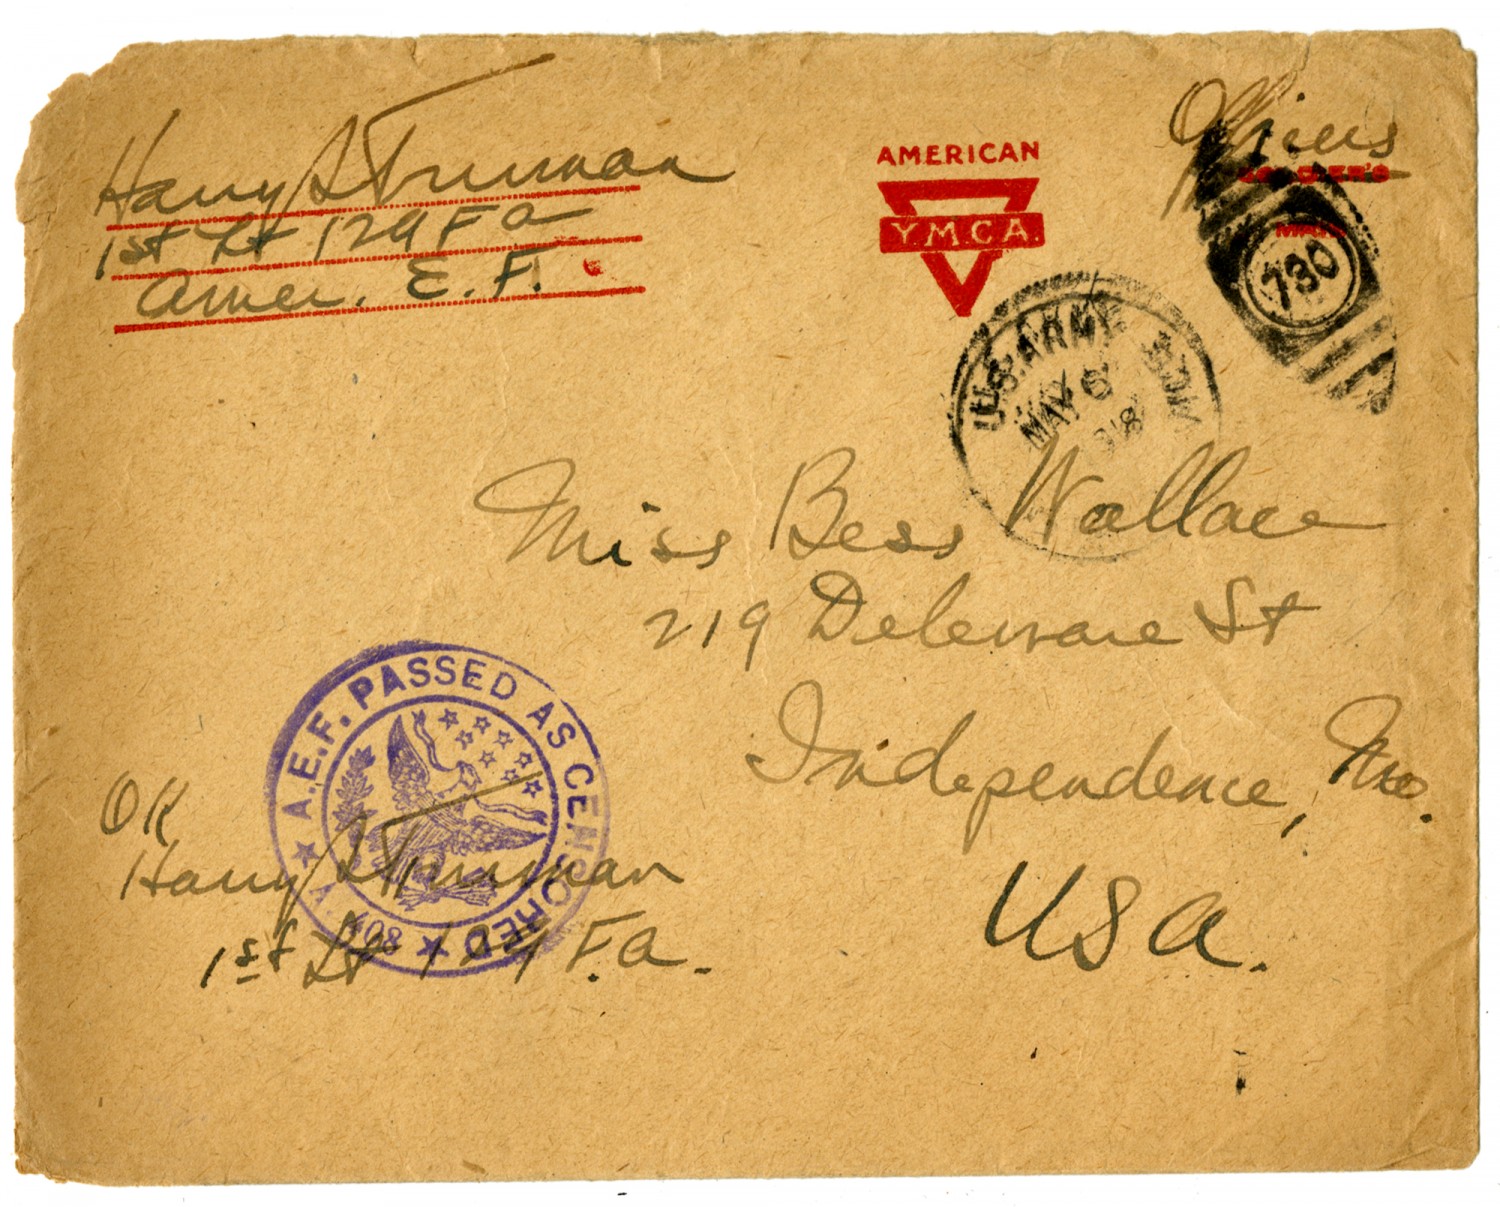 Harry S Truman
1st Lt 129 F a
Amer. E. F.
AMERICAN
YMCA
Officers
SOLDIER'S
MAIL
730
U.S. ARMY
MAY 6
1918
Miss Bess Wallace
219 Deleware St
Independence, Mo.
USa.
A.E.F. PASSED AS CENSORED
OK
Harry S Truman
1st Lt 129 F.a.